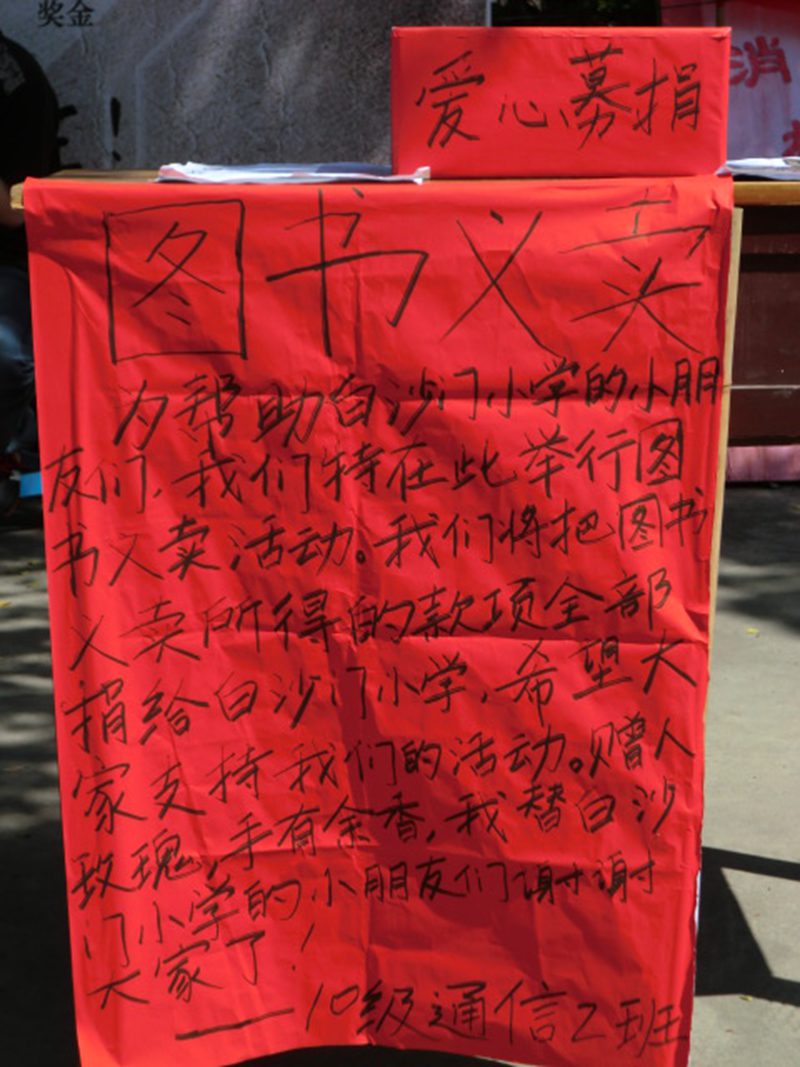 奖金
爱心募捐
消
图书义卖
为帮助白沙门小学的小朋
友们,我们特在此举行图
书义卖活动。我们将把图书
义卖所得的款项全部
捐给白沙门小学,希望大
家支持我们的活动。赠人
玫瑰,手有余香,我替白沙
门小学的小朋友们谢谢
大家了!
——10级通信2班